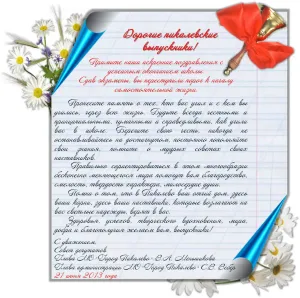 Дорогие пикалевские
выпускники!
Примите наши искренние поздравления с
успешным окончанием школы.
Сдав экзамены, вы переступили порог к началу
самостоятельной жизни.
Пронесите память о тех, кто вас учил и с кем вы
учились, через всю жизнь. Будьте всегда честными и
принципиальными, гуманными и справедливыми, как учили
вас в школе. Берегите свою честь, никогда не
останавливайтесь на достигнутом, постоянно пополняйте
свои знания, помните о мудрых советах своих
наставников.
Правильно сориентироваться в этом многообразии
бесконечно меняющегося мира помогут вам благородство,
смелость, твердость характера, милосердие души.
Помни о том, что в Пикалево ваш отчий дом, здесь
ваши корни, здесь ваши наставники, которые возлагают на
вас светлые надежды, верят в вас.
Здоровья, успехов, творческого вдохновения, мира,
добра и благополучия желаем вам, выпускники!
С уважением,
Совет депутатов
Глава МО "Город Пикалево"
Глава администрации МО "Город Пикалево"
21 июня 2013 года